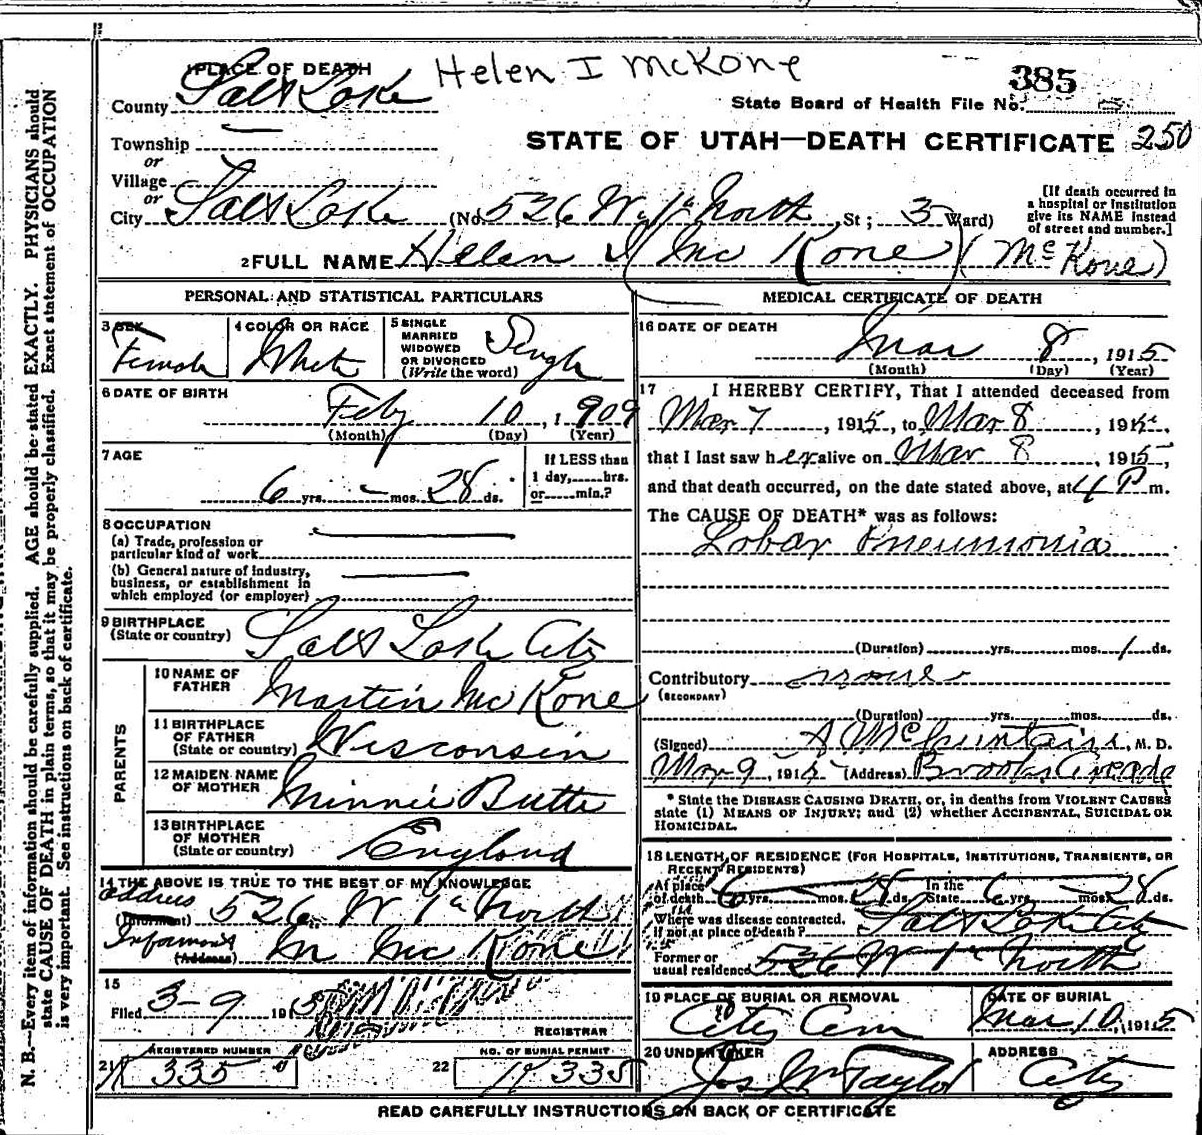 Helen I McKone
1 PLACE OF DEATH
385
County Salt Lake
State Board of Health File No.
STATE OF UTAH—DEATH CERTIFICATE 250
Township
or
Village
or
City Salt Lake (No. 526 W 1st North, St; 3 Ward)
[If death occurred in
a hospital or institution
give its NAME instead
of street and number.]
2 FULL NAME Helen I Mc Kone (McKone)
PERSONAL AND STATISTICAL PARTICULARS
3 SEX
Female
4 COLOR OR RACE
White
5 SINGLE
MARRIED
WIDOWED
OR DIVORCED
(Write the word)
Single
6 DATE OF BIRTH
Feby 10, 1909
(Month) (Day) (Year)
7 AGE
6 yrs. – mos. 28 ds.
If LESS than
1 day,......hrs.
or......min.?
8 OCCUPATION
(a) Trade, profession or
particular kind of work
(b) General nature of industry,
business, or establishment in
which employed (or employer)
9 BIRTHPLACE
(State or country) Salt Lake City
PARENTS
10 NAME OF
FATHER Martin McKone
11 BIRTHPLACE
OF FATHER
(State or country) Wisconsin
12 MAIDEN NAME
OF MOTHER Minnie Butte
13 BIRTHPLACE
OF MOTHER
(State or country) England
14 THE ABOVE IS TRUE TO THE BEST OF MY KNOWLEDGE
Address
(Informant) 526 W 1st North
Informant
(Address) M McKone
15
Filed 3-9 1915
REGISTRAR
21 REGISTERED NUMBER
335
22 NO. OF BURIAL PERMIT
335
MEDICAL CERTIFICATE OF DEATH
16 DATE OF DEATH
Mar 8, 1915
(Month) (Day) (Year)
17 I HEREBY CERTIFY, That I attended deceased from
Mar 7, 1915, to Mar 8, 1915,
that I last saw her alive on Mar 8, 1915,
and that death occurred, on the date stated above, at 4 P m.
The CAUSE OF DEATH* was as follows:
Lobar Pneumonia
(Duration) yrs. mos. 1 ds.
Contributory none
(SECONDARY)
(Duration) yrs. mos. ds.
(Signed) M. D.
Mar 9, 1915 (Address) Brooks Arcade
* State the DISEASE CAUSING DEATH, or, in deaths from VIOLENT CAUSES
state (1) MEANS OF INJURY; and (2) whether ACCIDENTAL, SUICIDAL OR
HOMICIDAL.
18 LENGTH OF RESIDENCE (FOR HOSPITALS, INSTITUTIONS, TRANSIENTS, OR
RECENT RESIDENTS)
At place
of death 6 yrs. mos. 28 ds. In the
State 6 yrs. – mos. 28 ds.
Where was disease contracted,
if not at place of death? Salt Lake City
Former or
usual residence 526 W 1st North
19 PLACE OF BURIAL OR REMOVAL
City Cem
DATE OF BURIAL
Mar 10, 1915
20 UNDERTAKER
Jos Wm Taylor
ADDRESS
City
READ CAREFULLY INSTRUCTIONS ON BACK OF CERTIFICATE
N. B.—Every item of information should be carefully supplied. AGE should be stated EXACTLY. PHYSICIANS should
state CAUSE OF DEATH in plain terms, so that it may be properly classified. Exact statement of OCCUPATION
is very important. See instructions on back of certificate.